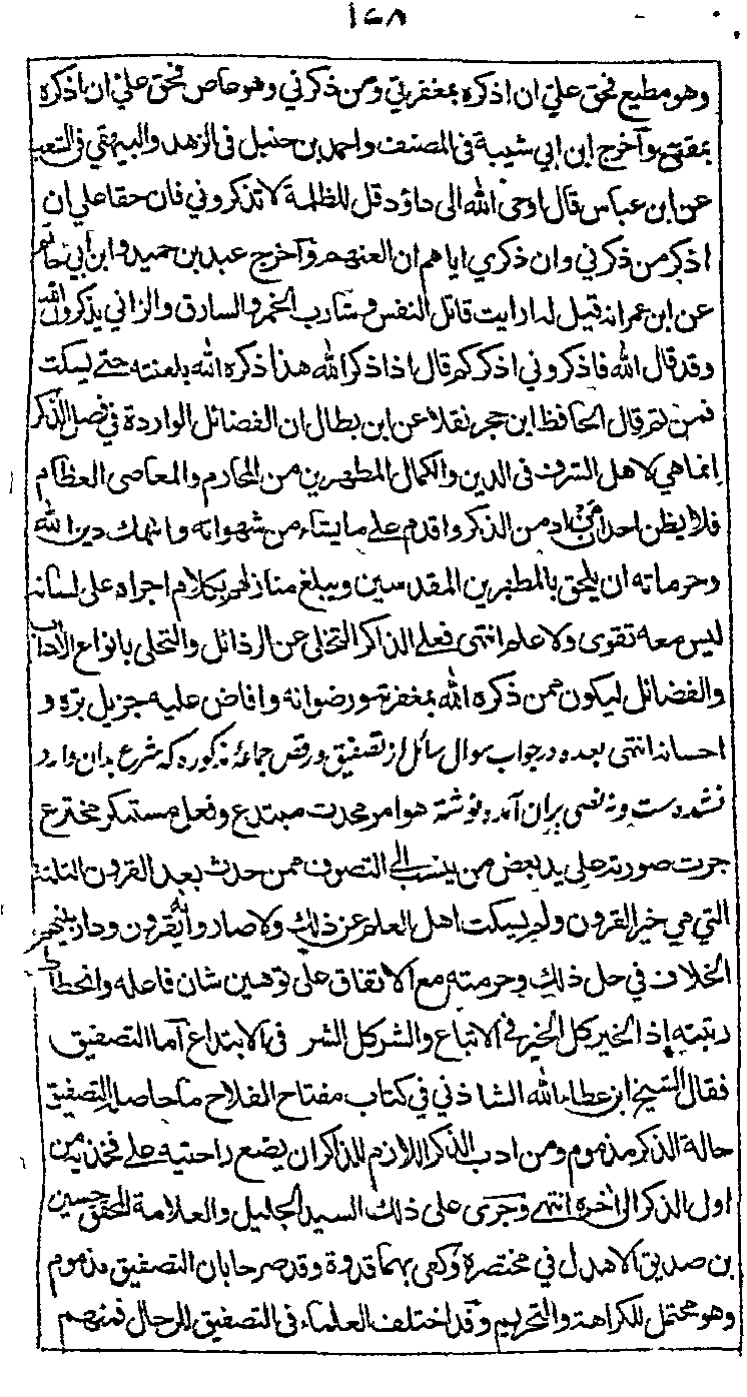 ۱۶۸
وهو مطيع فحق علي ان اذكره بمغفرتي ومن ذكرني وهو عاص فحق علي ان اذكره
بمقتي واخرج ابن ابي شيبة في المصنف واحمد بن حنبل في الزهد والبيهقي في الشعب
عن ابن عباس قال اوحى الله الى داؤد قل للظلمة لا تذكروني فان حقا علي ان
اذكر من ذكرني وان ذكري اياهم ان العنهم واخرج عبد بن حميد وابن ابي حاتم
عن ابن عمر انه قيل له ارايت قاتل النفس وشارب الخمر والسارق والزاني يذكر الله
وقد قال الله فاذكروني اذكركم قال اذا ذكر الله هذا ذكره الله بلعنته حتى يسكت
فمن ثم قال الحافظ ابن حجر نقلا عن ابن بطال ان الفضائل الواردة في فضل الذكر
انما هي لاهل الشرف في الدين والكمال المطهرين من المحارم والمعاصي العظام
فلا يظن احد ان من ادمن الذكر واقدم على ما يشاء من شهواته وانتهك دين الله
وحرماته ان يلحق بالمطهرين المقدسين ويبلغ منازلهم بكلام اجراه على لسانه
ليس معه تقوى ولا علم انتهى فعلى الذاكر التخلي عن الرذائل والتحلي بانواع الاداب
والفضائل ليكون ممن ذكره الله بمغفرته ورضوانه وافاض عليه جزيل بره و
احسانه انتهى بعده در جواب سوال سائل از تصفيق ورقص جماعهٔ مذكوره كه شرع بدان وارد
نشده ست ونه نصى بران آمده نوشته هو امر محدث مبتدع وفعل مستنكر مخترع
جرت صورته على يد بعض من ينسب الى التصوف ممن حدث بعد القرون الثلثة
التي هي خير القرون ولم يسكت اهل العلم عن ذلك ولا صاروا به يقرون ودار بينهم
الخلاف في حل ذلك وحرمته مع الاتفاق على توهين شان فاعله وانحطاط
رتبته اذ الخير كل الخير في الاتباع والشر كل الشر في الابتداع اما التصفيق
فقال الشيخ ابن عطاء الله الشاذلي في كتاب مفتاح الفلاح ما حاصله التصفيق
حالة الذكر مذموم ومن ادب الذكر اللازم للذاكر ان يضع راحتيه على فخذيه من
اول الذكر الى اخره انتهى وجرى على ذلك السيد الجليل والعلامة المحقق حسين
بن صديق الاهدل في مختصره وكفى بهما قدوة وقد صرحا بان التصفيق مذموم
وهو محتمل للكراهة والتحريم وقد اختلف العلماء في التصفيق للرجال فمنهم